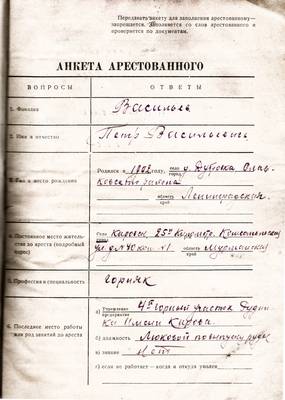 Передавать анкету для заполнения арестованному—
запрещается. Заполняется со слов арестованного и
проверяется по документам.
АНКЕТА АРЕСТОВАННОГО
ВОПРОСЫ ОТВЕТЫ
1. Фамилия Васильев
2. Имя и отчество Петр Васильевич
3. Год и место рождения
Родился в 1902 году, село город д. Дубовка
района
область край Ленинградская
4. Постоянное место жительства до ареста (подробный адрес)
Село город Кировск, 25 км
ул. д. № 40 кв. № 1 область край Мурманская
5. Профессия и специальность горняк
6. Последнее место работы или род занятий до ареста
а) Учреждение предприятие 4й горный участок
имени Кирова
б) должность Люковой
в) звание Нет
г) если не работает—когда и откуда уволен